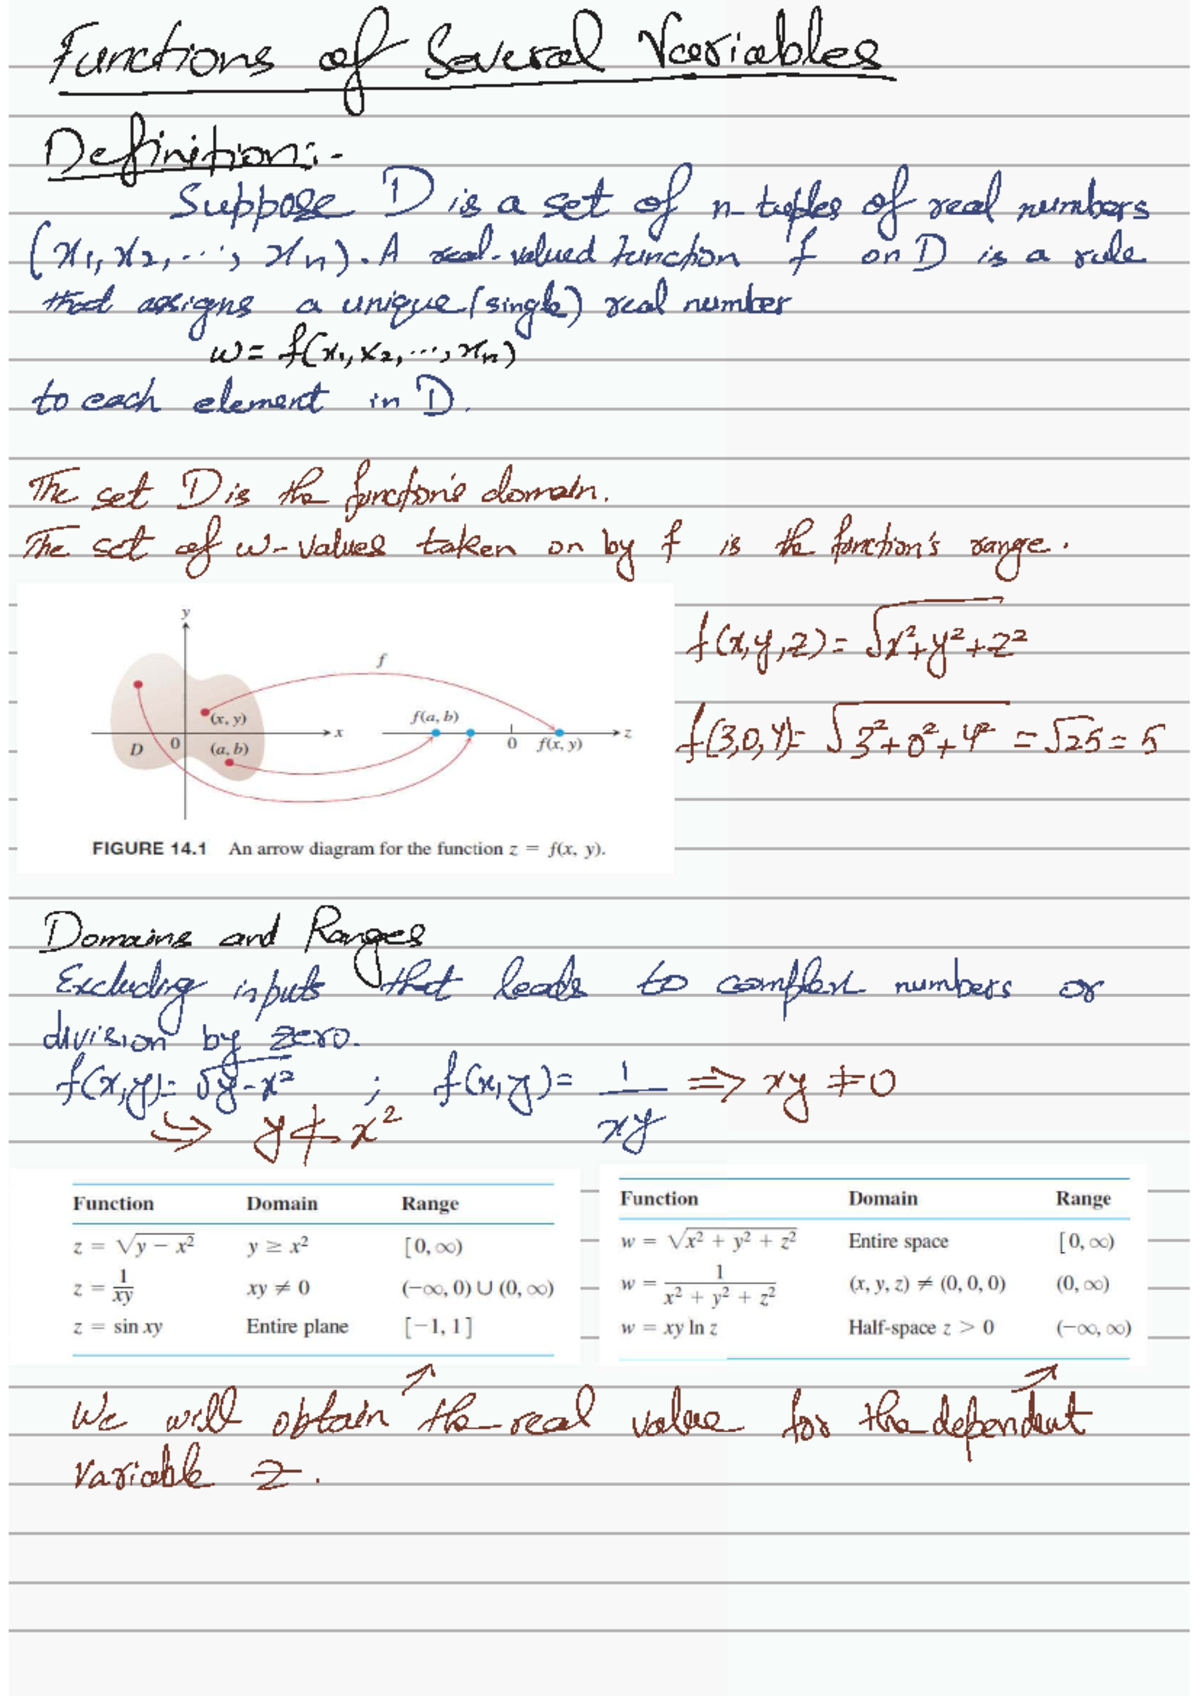 Functions of Several Variables
Definition:-
Suppose D is a set of n-tuples of real numbers
(x₁, x₂, ..., xₙ). A real-valued function f on D is a rule
that assigns a unique (single) real number
w = f(x₁, x₂, ..., xₙ)
to each element in D.
The set D is the function's domain.
The set of w-values taken on by f is the function's range.
y
f
(x, y)
f(a, b)
x
z
D
0
(a, b)
0
f(x, y)
FIGURE 14.1 An arrow diagram for the function z = f(x, y).
f(x,y,z) = √x²+y²+z²
f(3,0,4) = √3²+0²+4² = √25 = 5
Domains and Ranges
Excluding inputs that leads to complex numbers or
division by zero.
f(x,y) = √y-x² ; f(x,y) = 1/xy ⇒ xy ≠ 0
↪ y ≮ x²
Function Domain Range
z = √y − x² y ≥ x² [0, ∞)
z = 1/xy xy ≠ 0 (−∞, 0) ∪ (0, ∞)
z = sin xy Entire plane [−1, 1]
Function Domain Range
w = √x² + y² + z² Entire space [0, ∞)
w = 1/x² + y² + z² (x, y, z) ≠ (0, 0, 0) (0, ∞)
w = xy ln z Half-space z > 0 (−∞, ∞)
We will obtain the real value for the dependent
variable z.